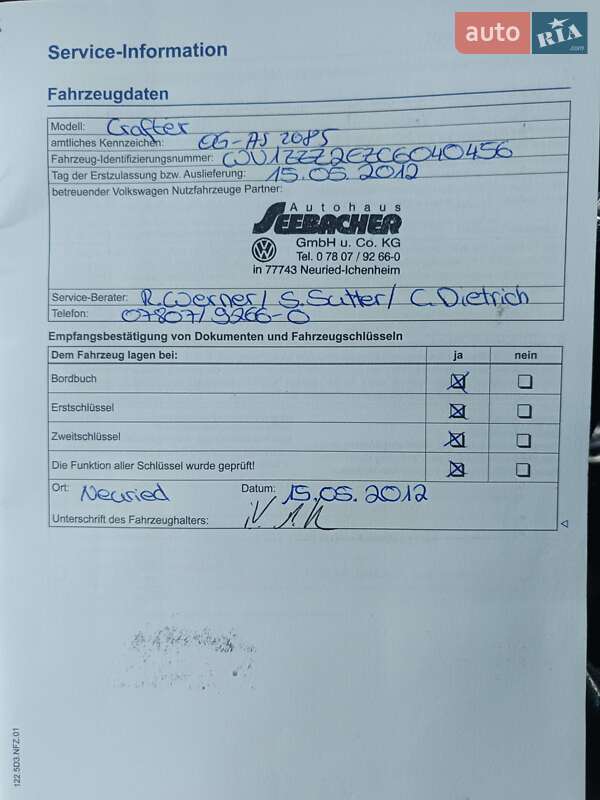 auto RIA.com
Service-Information
Fahrzeugdaten
Modell: Crafter
amtliches Kennzeichen: OG-AS 2085
Fahrzeug-Identifizierungsnummer: WV1ZZZ2EZC6040456
Tag der Erstzulassung bzw. Auslieferung: 15.05.2012
betreuender Volkswagen Nutzfahrzeuge Partner:
Autohaus
SEEBACHER
GmbH u. Co. KG
Tel. 0 78 07 / 92 66-0
in 77743 Neuried-Ichenheim
Service-Berater: R. Werner / S. Sutter / C. Dietrich
Telefon: 07807/9266-0
Empfangsbestätigung von Dokumenten und Fahrzeugschlüsseln
Dem Fahrzeug lagen bei: ja nein
Bordbuch
Erstschlüssel
Zweitschlüssel
Die Funktion aller Schlüssel wurde geprüft!
Ort: Neuried Datum: 15.05.2012
Unterschrift des Fahrzeughalters:
122.5D3.NFZ.01